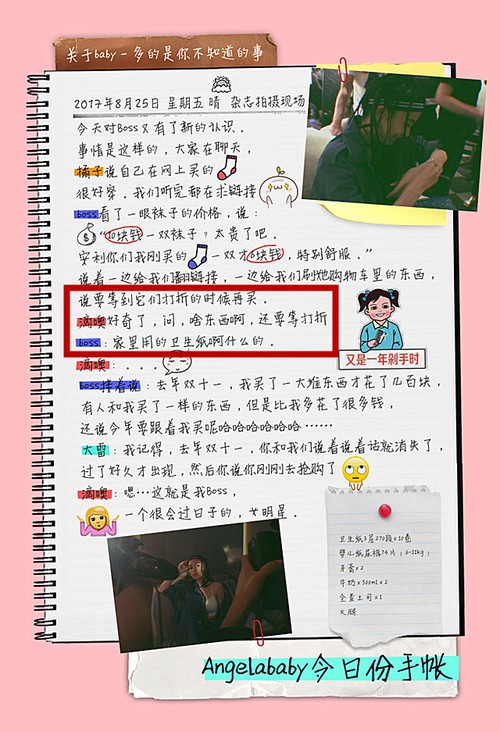 关于baby-多的是你不知道的事
2017年8月25日 星期五 晴 杂志拍摄现场
今天对Boss又有了新的认识.
事情是这样的,大家在聊天,
橘子说自己在网上买的
很好穿.我们听完都在求链接
boss看了一眼袜子的价格,说:
"10块钱一双袜子?太贵了吧.
安利你们我刚买的 一双才6块钱,特别舒服."
说着一边给我们翻链接,一边给我们刷她购物车里的东西,
说要等到它们打折的时候再买.
滴噢好奇了,问,啥东西啊,还要等打折
boss:家里用的卫生纸啊什么的.
滴噢:....
又是一年剁手时
boss接着说:去年双十一,我买了一大堆东西才花了几百块,
有人和我买了一样的东西,但是比我多花了很多钱,
还说今年要跟着我买呢哈哈哈哈哈哈……
大雷:我记得,去年双十一,你和我们说着说着话就消失了,
过了好久才出现,然后你说你刚刚去抢购了
滴噢:嗯…这就是我Boss,
一个很会过日子的,女明星.
卫生纸3层270段x10卷
婴儿纸尿裤74片(6-11kg);
牙膏x2
牛奶x500mlx2
全麦土司x1
火腿
Angelababy今日份手帐